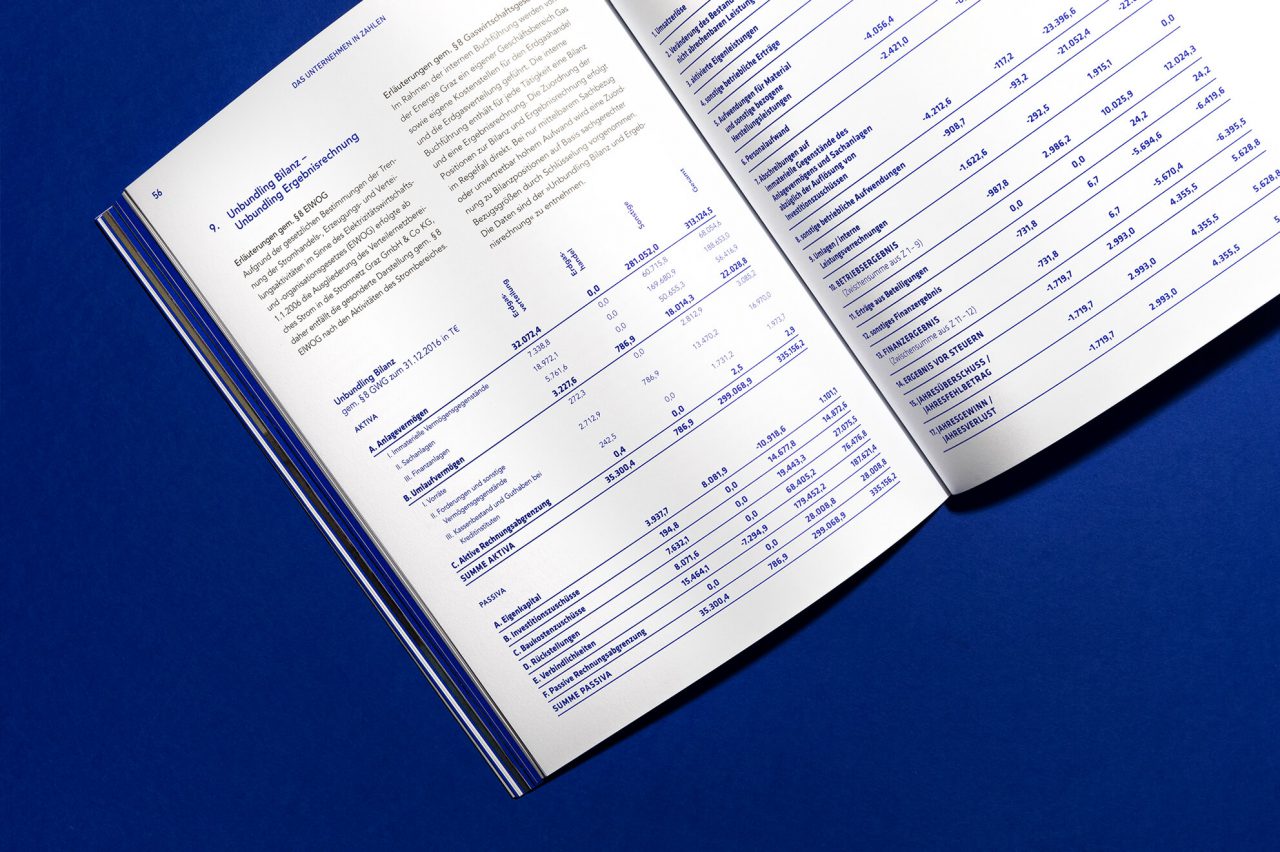 DAS UNTERNEHMEN IN ZAHLEN
56
9. Unbundling Bilanz –
Unbundling Ergebnisrechnung
Erläuterungen gem. § 8 EIWOG
Aufgrund der gesetzlichen Bestimmungen der Tren-
nung der Stromhandels-, Erzeugungs- und Vertei-
lungsaktivitäten im Sinne des Elektrizitätswirtschafts-
und -organisationsgesetzes (EIWOG) erfolgte ab
1.1.2006 die Ausgliederung des Verteilernetzberei-
ches Strom in die Stromnetz Graz GmbH & Co KG,
daher entfällt die gesonderte Darstellung gem. § 8
EIWOG nach den Aktivitäten des Strombereiches.
Erläuterungen gem. § 8 Gaswirtschaftsges
Im Rahmen der internen Buchführung werden von
der Energie Graz ein eigener Geschäftsbereich Gas
sowie eigene Kostenstellen für den Erdgashandel
und die Erdgasverteilung geführt. Die interne
Buchführung enthält für jede Tätigkeit eine Bilanz
und eine Ergebnisrechnung. Die Zuordnung der
Positionen zur Bilanz und Ergebnisrechnung erfolgt
im Regelfall direkt. Bei nur mittelbarem Sachbezug
oder unvertretbar hohem Aufwand wird eine Zuord-
nung zu Bilanzpositionen auf Basis sachgerechter
Bezugsgrößen durch Schlüsselung vorgenommen.
Die Daten sind der »Unbundling Bilanz und Ergeb-
nisrechnung« zu entnehmen.
Unbundling Bilanz
gem. § 8 GWG zum 31.12.2016 in T€
Erdgas-
verteilung
Erdgas-
handel
Sonstige
Gesamt
AKTIVA
A. Anlagevermögen 32.072,4 0,0 281.052,0 313.124,5
I. Immaterielle Vermögensgegenstände 7.338,8 0,0 60.715,8 68.054,6
II. Sachanlagen 18.972,1 0,0 169.680,9 188.653,0
III. Finanzanlagen 5.761,6 0,0 50.655,3 56.416,9
B. Umlaufvermögen 3.227,6 786,9 18.014,3 22.028,8
I. Vorräte 272,3 0,0 2.812,9 3.085,2
II. Forderungen und sonstige
Vermögensgegenstände 2.712,9 786,9 13.470,2 16.970,0
III. Kassenbestand und Guthaben bei
Kreditinstituten 242,5 0,0 1.731,2 1.973,7
C. Aktive Rechnungsabgrenzung 0,4 0,0 2,5 2,9
SUMME AKTIVA 35.300,4 786,9 299.068,9 335.156,2
PASSIVA
A. Eigenkapital 3.937,7 8.081,9 -10.918,6 1.101,1
B. Investitionszuschüsse 194,8 0,0 14.677,8 14.872,6
C. Baukostenzuschüsse 7.632,1 0,0 19.443,3 27.075,5
D. Rückstellungen 8.071,6 0,0 68.405,2 76.476,8
E. Verbindlichkeiten 15.464,1 -7.294,9 179.452,2 187.621,4
F. Passive Rechnungsabgrenzung 0,0 0,0 28.008,8 28.008,8
SUMME PASSIVA 35.300,4 786,9 299.068,9 335.156,2
1. Umsatzerlöse
2. Veränderung des Bestand
nicht abrechenbaren Leistung
3. aktivierte Eigenleistungen
4. sonstige betriebliche Erträge
5. Aufwendungen für Material
und sonstige bezogene
Herstellungsleistungen -4.056,4
6. Personalaufwand -2.421,0
7. Abschreibungen auf
immaterielle Gegenstände des
Anlagevermögens und Sachanlagen
abzüglich der Auflösung von
Investitionszuschüssen -4.212,6 -117,2 -23.396,6
8. sonstige betriebliche Aufwendungen -908,7 -93,2 -21.052,4
9. Umlagen / interne
Leistungsverrechnungen -1.622,6 -292,5 1.915,1 0,0
10. BETRIEBSERGEBNIS
(Zwischensumme aus Z 1–9) -987,8 2.986,2 10.025,9 12.024,3
11. Erträge aus Beteiligungen 0,0 0,0 24,2 24,2
12. sonstiges Finanzergebnis -731,8 6,7 -5.694,6 -6.419,6
13. FINANZERGEBNIS
(Zwischensumme aus Z 11–12) -731,8 6,7 -5.670,4 -6.395,5
14. ERGEBNIS VOR STEUERN -1.719,7 2.993,0 4.355,5 5.628,8
15. JAHRESÜBERSCHUSS /
JAHRESFEHLBETRAG -1.719,7 2.993,0 4.355,5 5.628,8
17. JAHRESGEWINN /
JAHRESVERLUST -1.719,7 2.993,0 4.355,5